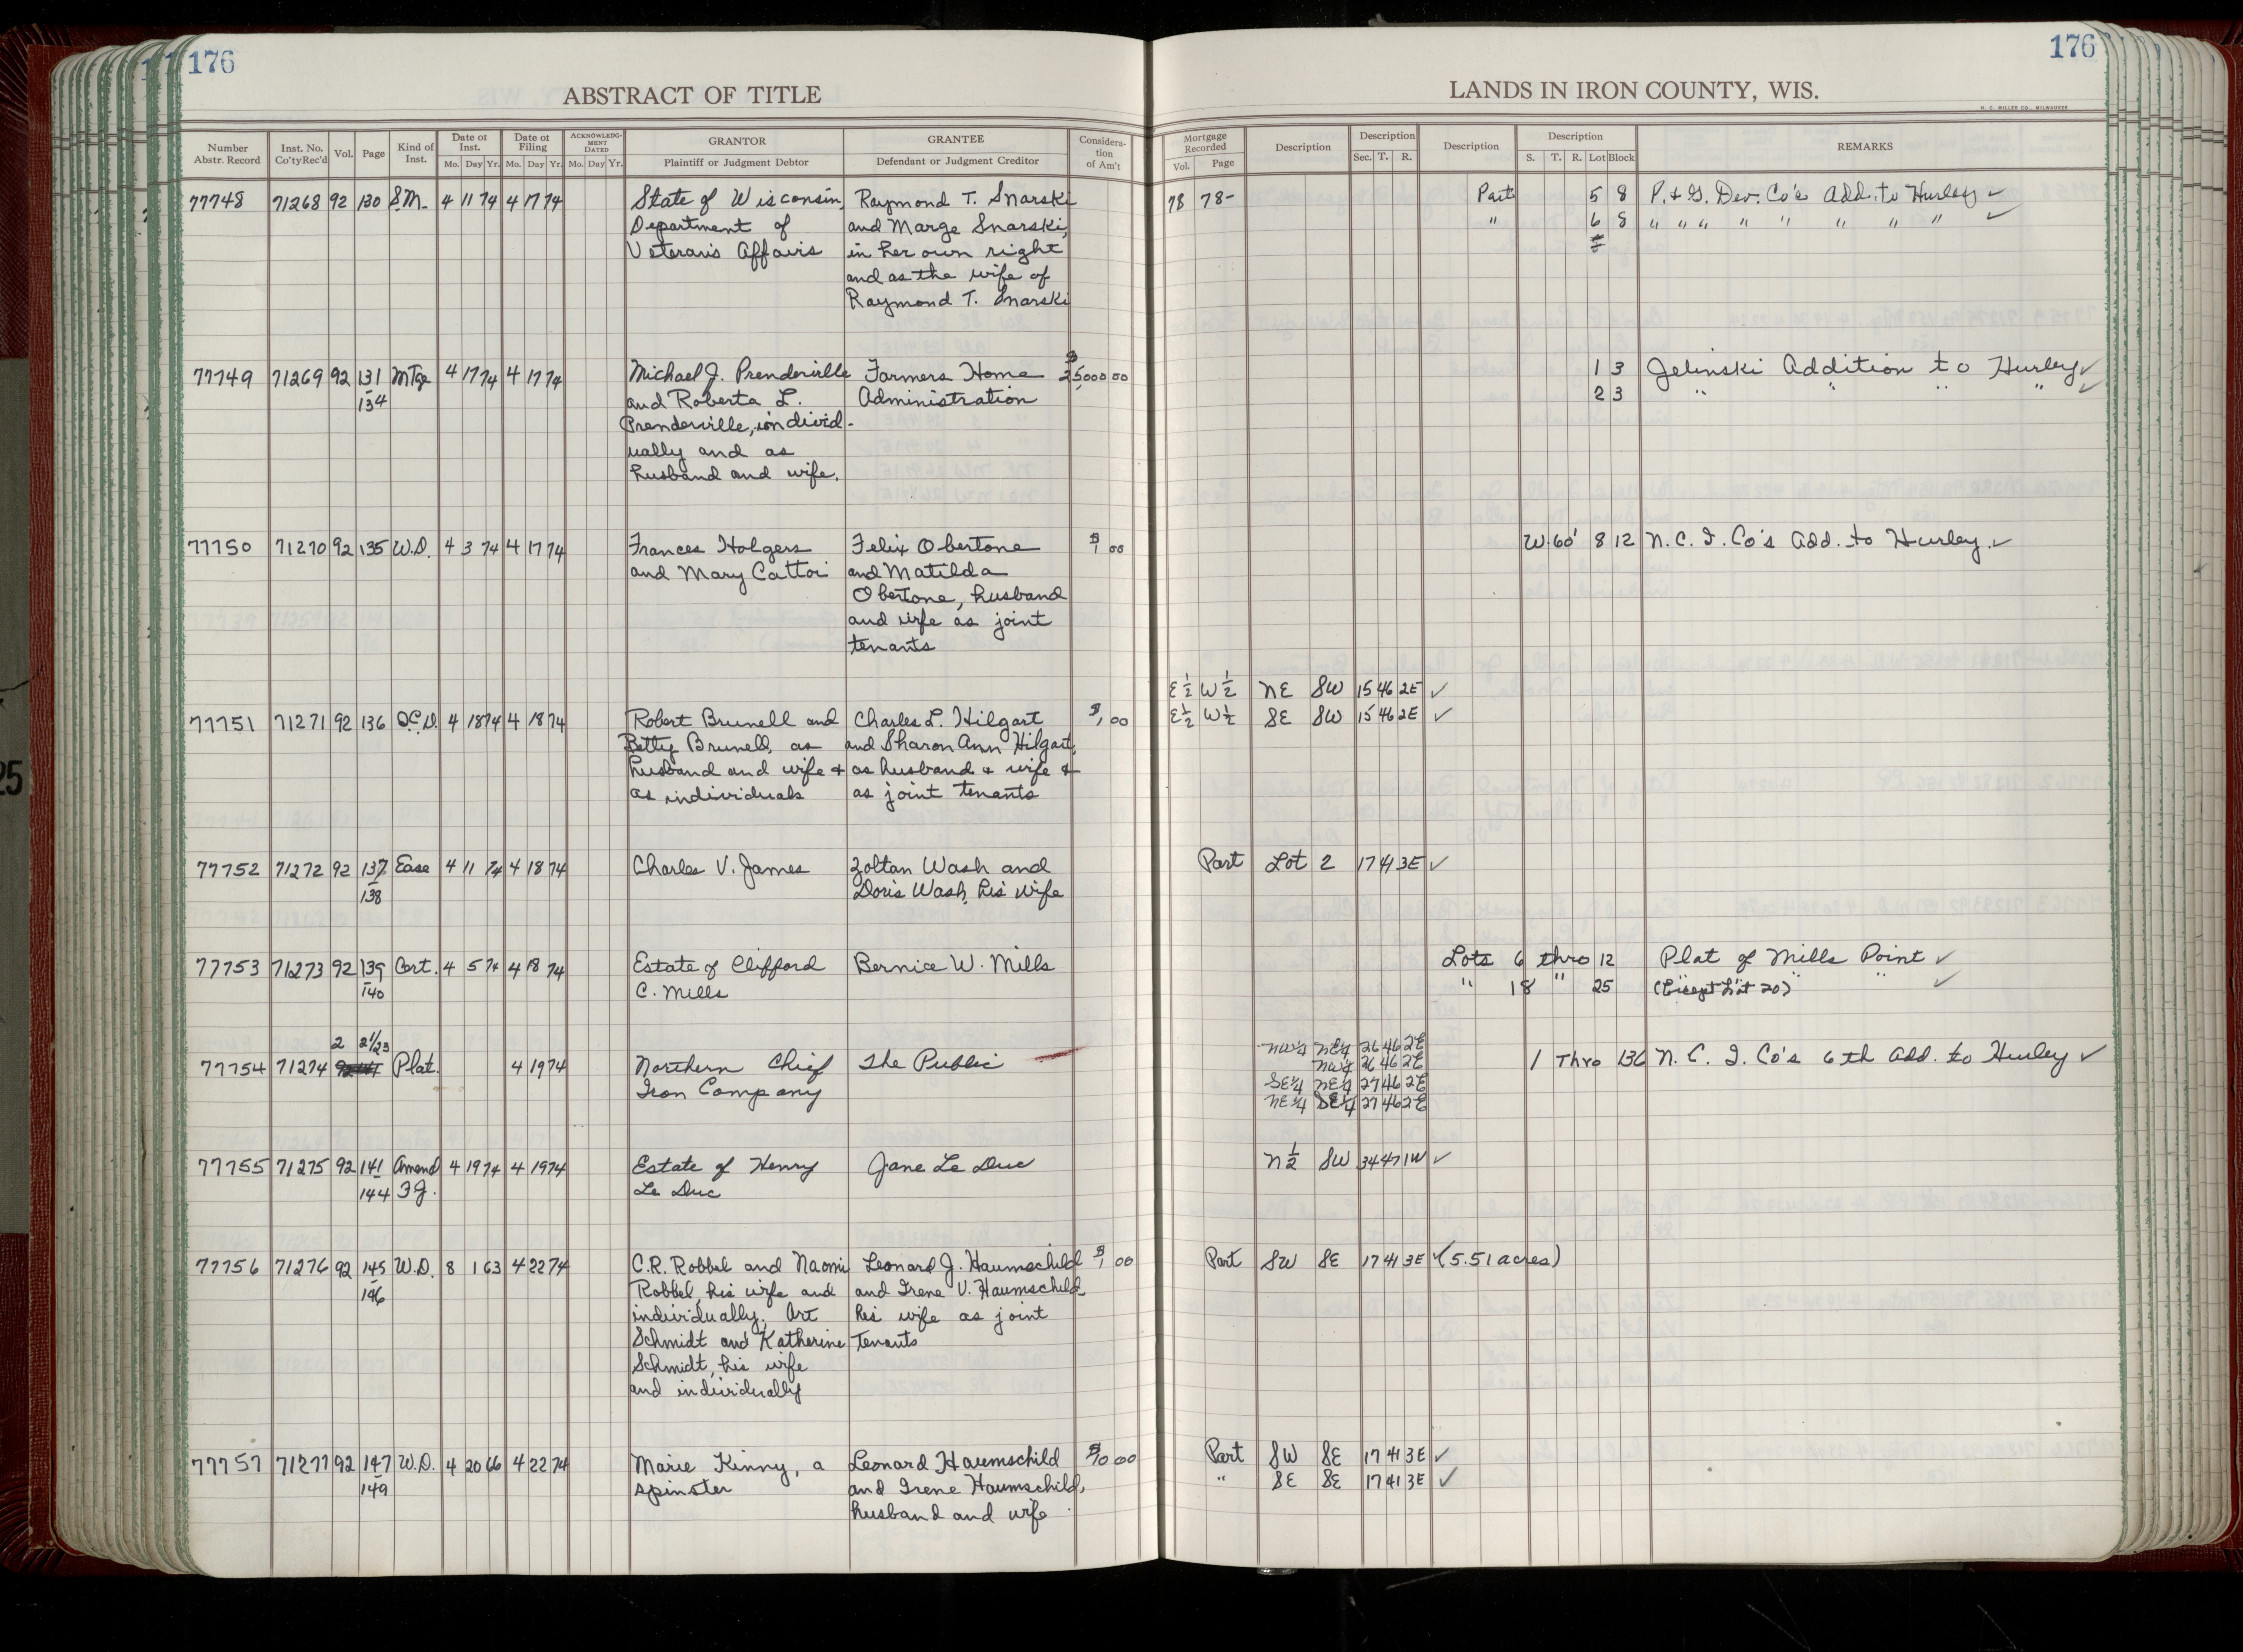 176
176
ABSTRACT OF TITLE
LANDS IN IRON COUNTY, WIS.
H. C. MILLER CO., MILWAUKEE
Number Abstr. Record | Inst. No. Co'tyRec'd | Vol. | Page | Kind of Inst. | Date of Inst. Mo. Day Yr. | Date of Filing Mo. Day Yr. | ACKNOWLEDGMENT DATED Mo. Day Yr. | GRANTOR Plaintiff or Judgment Debtor | GRANTEE Defendant or Judgment Creditor | Consideration of Am't | Mortgage Recorded Vol. Page | Description | Description Sec. T. R. | Description | Description S. T. R. Lot Block | REMARKS
77748 71268 92 130 S.M. 4 11 74 4 17 74 State of Wisconsin, Raymond T. Snarski 78 78- Part 5 8 P. & G. Dev. Co's Add. to Hurley ✓
Department of and Marge Snarski, " 6 8 " " " " " " " " ✓
Veterans Affairs in her own right
and as the wife of
Raymond T. Snarski
77749 71269 92 131 Mtge 4 17 74 4 17 74 Michael J. Prenderville Farmers Home $25,000 00 1 3 Jelinski Addition to Hurley ✓
134 and Roberta L. Administration 2 3 " " " " ✓
Prenderville, individ-
ually and as
husband and wife.
77750 71270 92 135 W.D. 4 3 74 4 17 74 Frances Holgers Felix Obertone $1 00 W. 60' 8 12 N. C. I. Co's Add. to Hurley. ✓
and Mary Cattoi and Matilda
Obertone, husband
and wife as joint
tenants
E 1/2 W 1/2 NE SW 15 46 2E ✓
77751 71271 92 136 Q.C.D. 4 18 74 4 18 74 Robert Brunell and Charles L. Hilgart $1, 00 E 1/2 W 1/2 SE SW 15 46 2E ✓
Betty Brunell, as and Sharon Ann Hilgart,
husband and wife & as husband & wife &
as individuals as joint tenants
77752 71272 92 137 Ease 4 11 74 4 18 74 Charles V. James Zoltan Wash and Part Lot 2 17 41 3E ✓
138 Doris Wash, his wife
77753 71273 92 139 Cert. 4 5 74 4 18 74 Estate of Clifford Bernice W. Mills Lots 6 thro 12 Plat of Mills Point ✓
140 C. Mills " 18 " 25 (Except Lot 20) " ✓
2 21/23 NW1/4 NE1/4 26 46 2E
77754 71274 Plat. 4 19 74 Northern Chief The Public NW1/4 26 46 2E 1 Thro 136 N. C. I. Co's 6th Add. to Hurley ✓
Iron Company SE1/4 NE1/4 27 46 2E
NE1/4 SE1/4 27 46 2E
77755 71275 92 141 Amend 4 19 74 4 19 74 Estate of Henry Jane Le Duc N 1/2 SW 34 47 1W ✓
144 F.J. Le Duc
77756 71276 92 145 W.D. 8 1 63 4 22 74 C.R. Robbel and Naomi Leonard J. Haumschild $1 00 Part SW SE 17 41 3E ✓ (5.51 acres)
146 Robbel, his wife and and Irene V. Haumschild,
individually, Art his wife as joint
Schmidt and Katherine Tenants
Schmidt, his wife
and individually
77757 71277 92 147 W.D. 4 20 66 4 22 74 Marie Kinny, a Leonard Haumschild $10 00 Part SW SE 17 41 3E ✓
149 spinster and Irene Haumschild, " SE SE 17 41 3E ✓
husband and wife
25